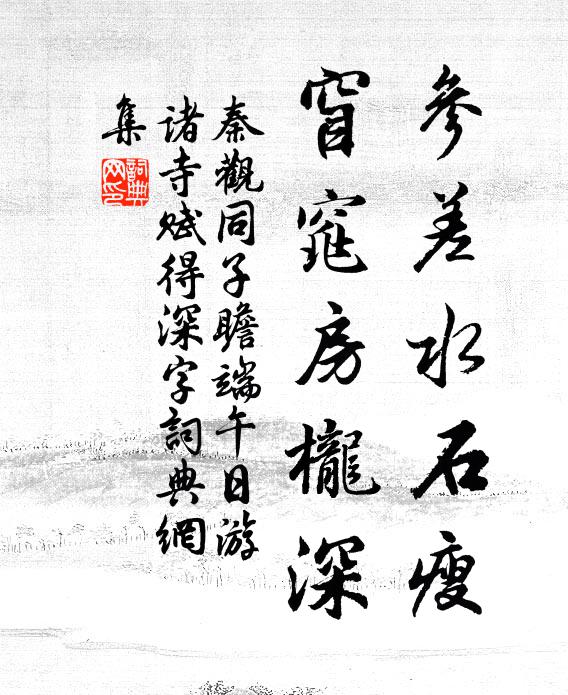 參差水石瘦
窅窕房櫳深
秦觀同子瞻端午日游
諸寺賦得深字詞典網
集
詞典網印